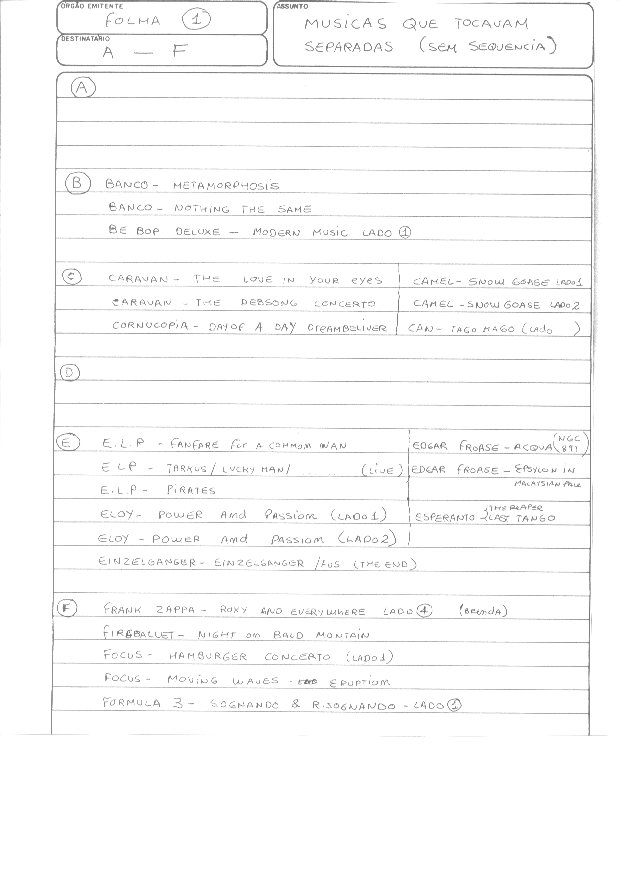 ÓRGÃO EMITENTE
FOLHA 1
ASSUNTO
MUSICAS QUE TOCAVAM
SEPARADAS (SEM SEQUENCIA)
DESTINATÁRIO
A — F
A
B BANCO - METAMORPHOSIS
BANCO - NOTHING THE SAME
BE BOP DELUXE - MODERN MUSIC LADO 1
C CARAVAN - THE LOVE IN YOUR EYES
CARAVAN - THE DEBSONG CONCERTO
CORNUCOPIA - DAY OF A DAY DREAMBELIVER
CAMEL - SNOW GOASE LADO 1
CAMEL - SNOW GOASE LADO 2
CAN - TAGO MAGO (LADO )
D
E E.L.P - FANFARE FOR A COMMOM MAN
E L P - TARKUS / LUCKY MAN / (LIVE)
E.L.P - PIRATES
ELOY - POWER AND PASSIOM (LADO 1)
ELOY - POWER AND PASSIOM (LADO 2)
EINZELGANGER - EINZELGANGER / (THE END)
EDGAR FROASE - ACQUA (NGC 891)
EDGAR FROASE - EPSYLON IN
MALAYSIAN PALE
ESPERANTO THE REAPER
LAST TANGO
F FRANK ZAPPA - ROXY AND EVERYWHERE LADO 4 (BRENDA)
FIREBALLET - NIGHT OM BALD MONTAIN
FOCUS - HAMBURGER CONCERTO (LADO 1)
FOCUS - MOVING WAVES - ERUPTIUM
FORMULA 3 - SOGNANDO & RISOGNANDO - LADO 1